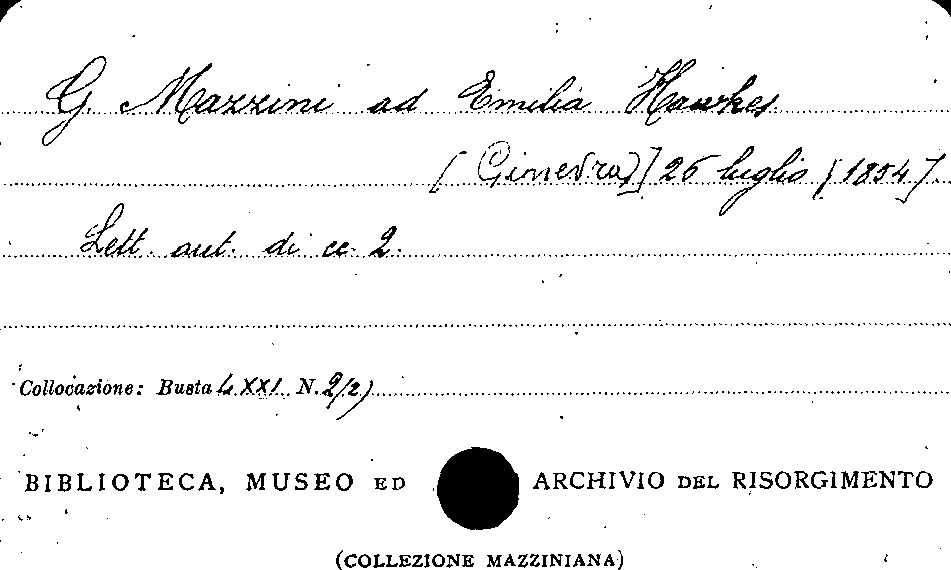 G. Mazzini ad Emilia Hawkes
[Ginevra)] 26 luglio [1854].
Lett. aut. di cc. 2.
Collocazione: Busta LXXI N. 2/2)
BIBLIOTECA, MUSEO ED ARCHIVIO DEL RISORGIMENTO
(COLLEZIONE MAZZINIANA)